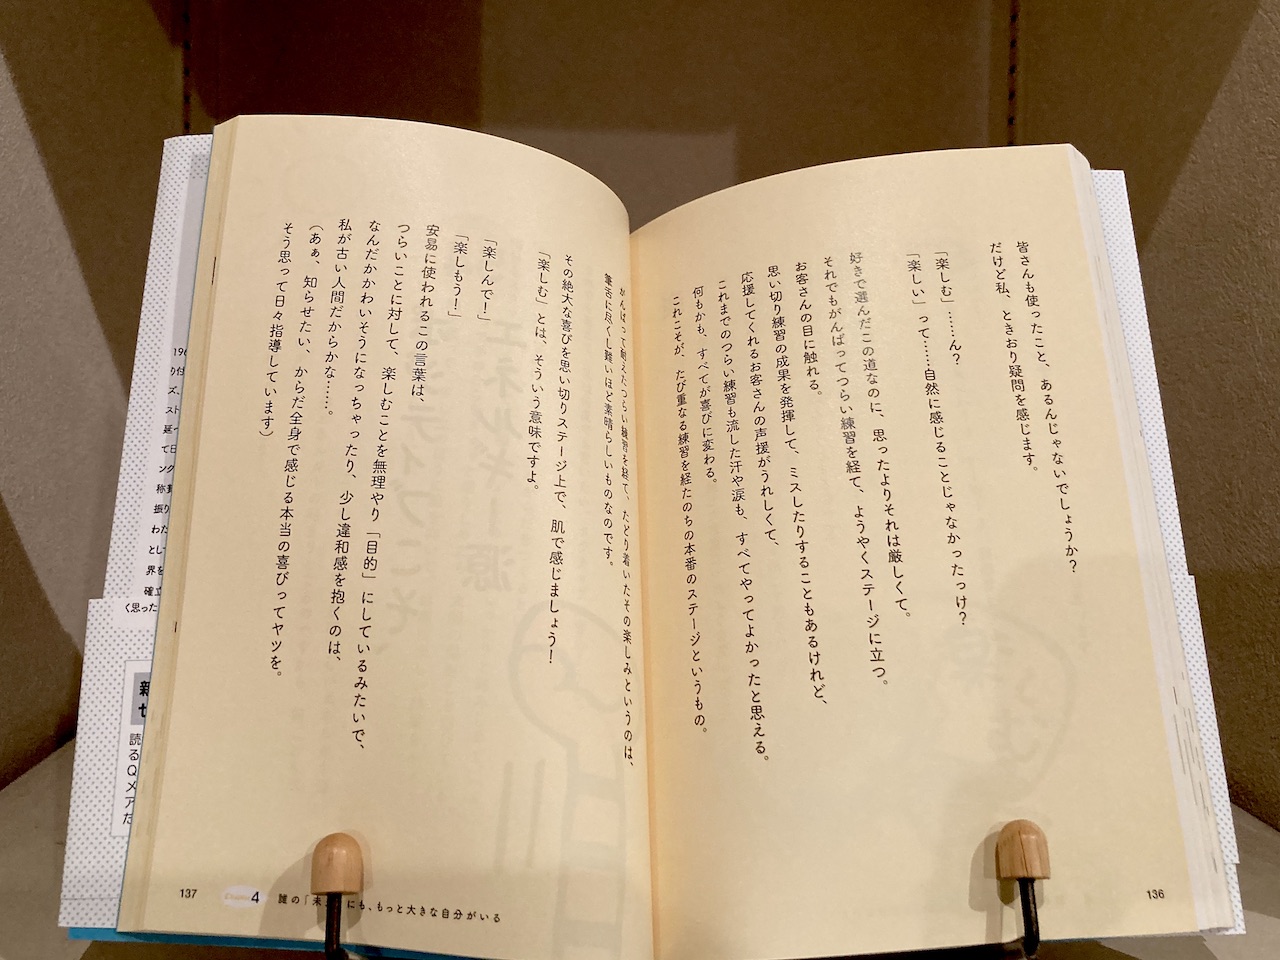 皆さんも使ったこと、あるんじゃないでしょうか？
だけど私、ときおり疑問を感じます。
「楽しむ」……ん？
「楽しい」って……自然に感じることじゃなかったっけ？
好きで選んだこの道なのに、思ったよりそれは厳しくて。
それでもがんばってつらい練習を経て、ようやくステージに立つ。
お客さんの目に触れる。
思い切り練習の成果を発揮して、ミスしたりすることもあるけれど、
応援してくれるお客さんの声援がうれしくて、
これまでのつらい練習も流した汗や涙も、すべてやってよかったと思える。
何もかも、すべてが喜びに変わる。
これこそが、たび重なる練習を経たのちの本番のステージというもの。
136
がんばって耐えたつらい練習を経て、たどり着いたその楽しみというのは、
筆舌に尽くし難いほど素晴らしいものなのです。
その絶大な喜びを思い切りステージ上で、肌で感じましょう！
「楽しむ」とは、そういう意味ですよ。
「楽しんで！」
「楽しもう！」
安易に使われるこの言葉は、
つらいことに対して、楽しむことを無理やり「目的」にしているみたいで、
なんだかかわいそうになっちゃったり、少し違和感を抱くのは、
私が古い人間だからかな……。
（あぁ、知らせたい、からだ全身で感じる本当の喜びってヤツを。
そう思って日々指導しています）
137
4 誰の「未 にも、もっと大きな自分がいる
196
り付
ズ、
スト
延べ
て日
ング
称
振り
わた
とし
界を
確立
く思った
新
読るQメアた